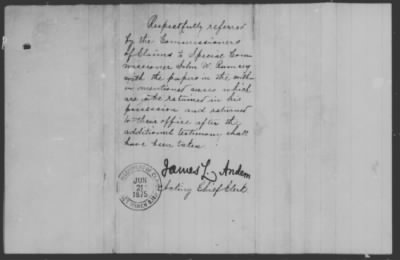 Respectfully referred
by the Commissioners
of Claims to Special Com
missioner John W. Ramsey
with the papers in the with
in mentioned cases which
are to be retained in his
possession and returned
to their office after the
additional testimony shall
have been taken.
James L. Andem
Acting Chief Clerk
JUN
21
1875